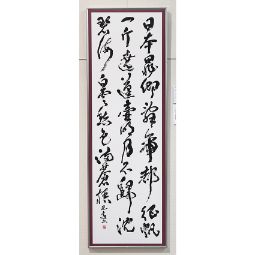 日本晁卿辭帝都征帆
一片遶蓬壺明月不歸沈
碧海白雲愁色滿蒼梧